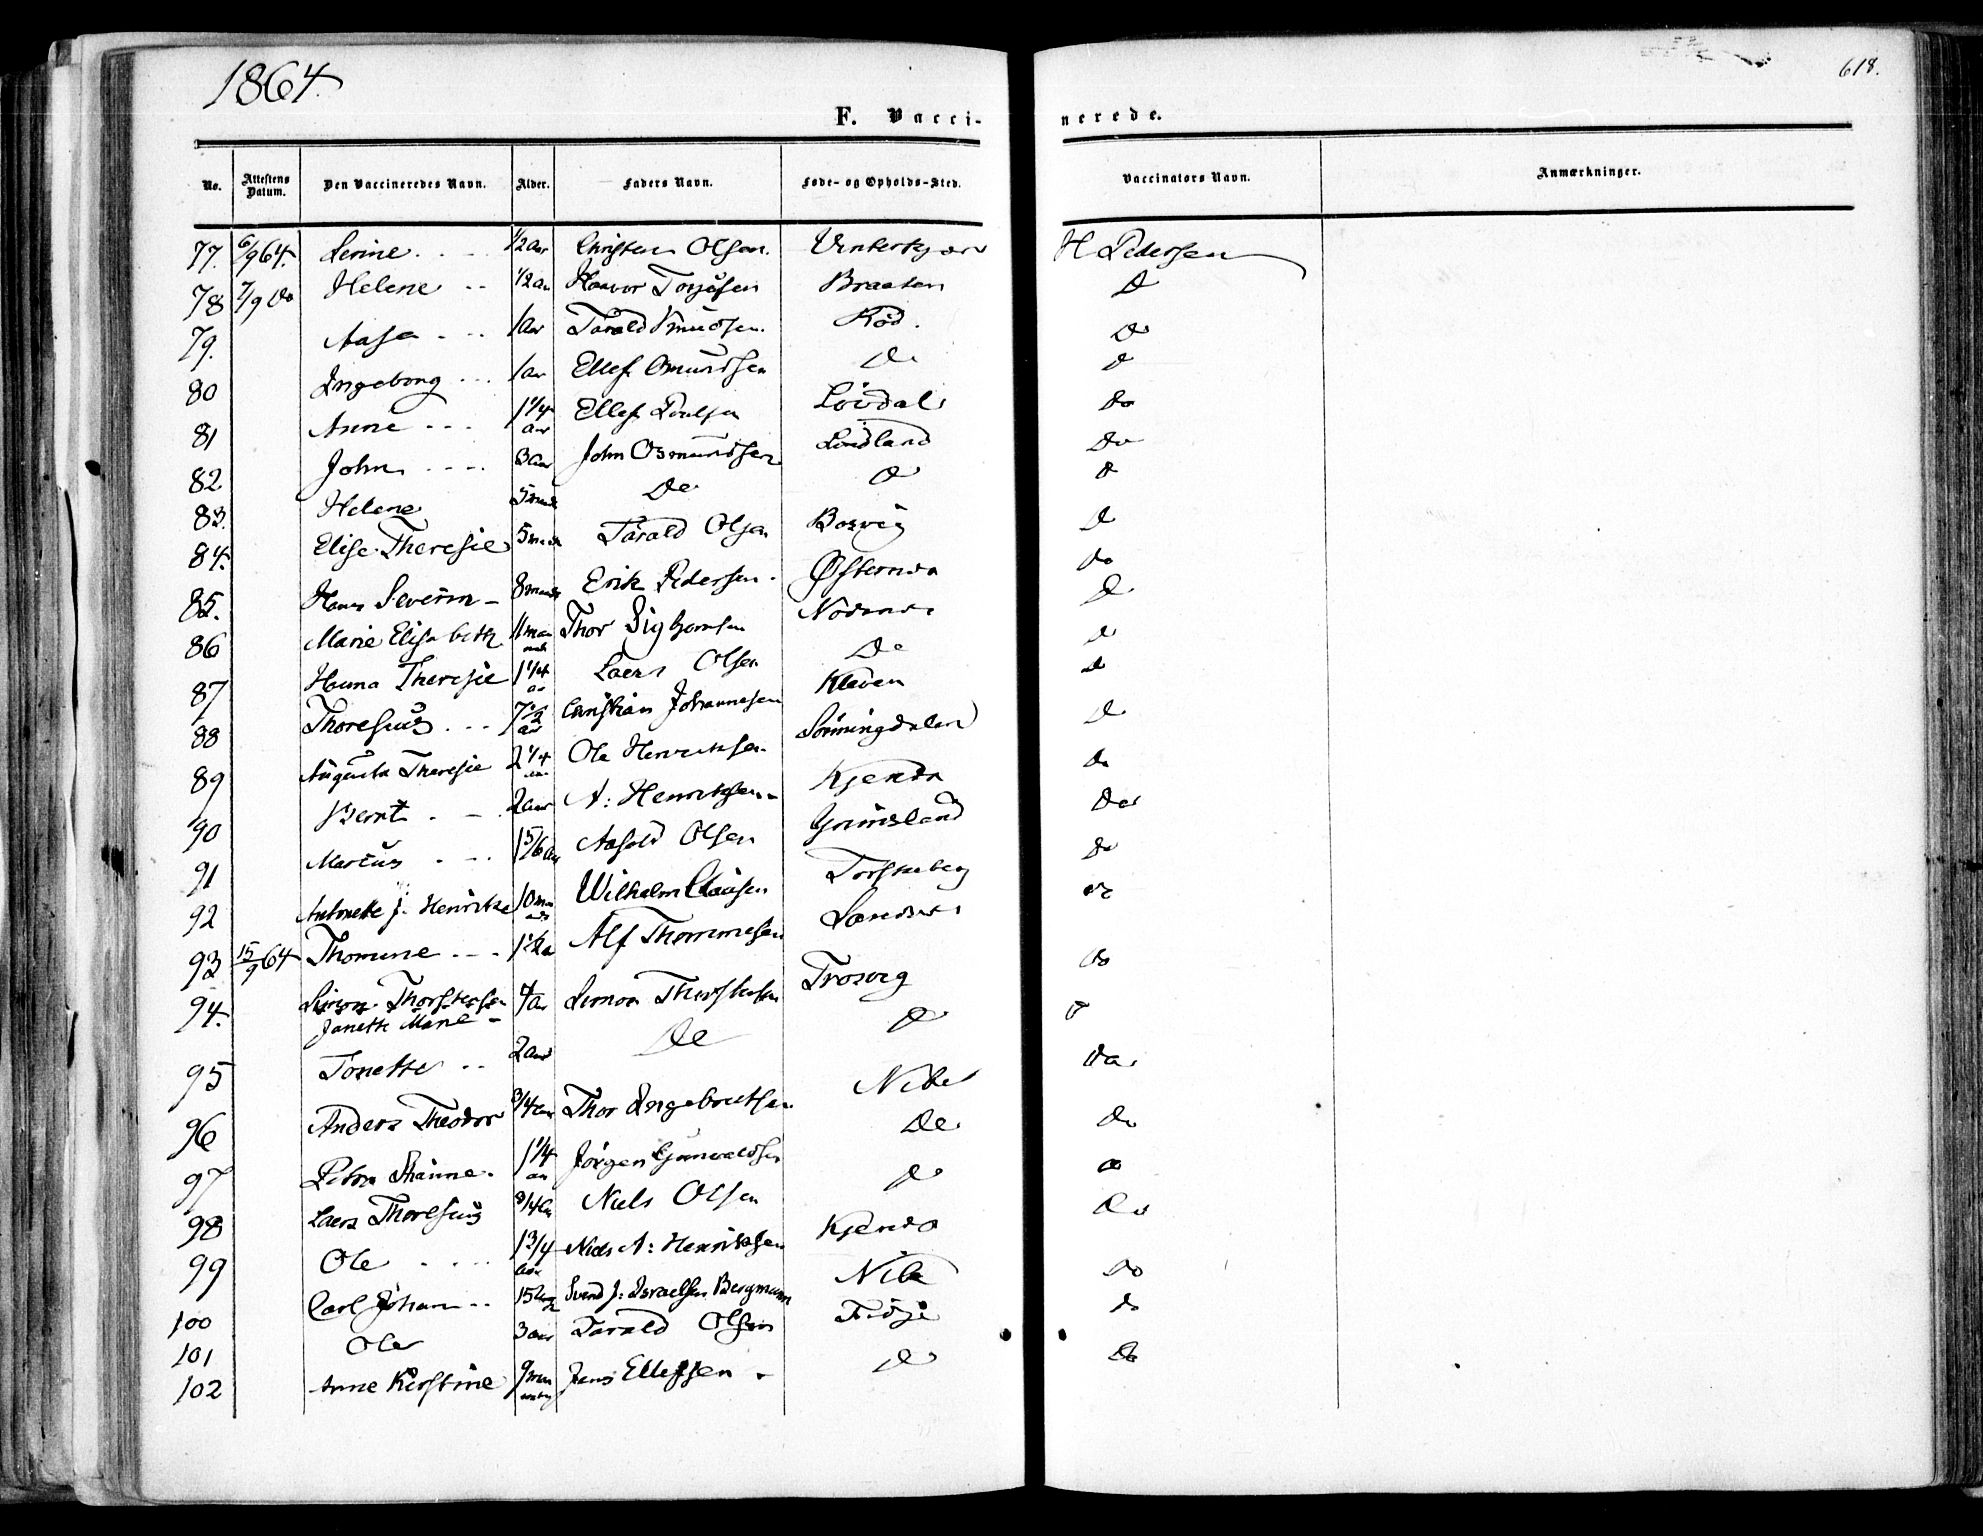 1864.
618.
F. Vacci- nerede.
No. Attestens Datum. Den Vaccineredes Navn. Alder. Faders Navn. Føde- og Opholds-Sted. Vaccinators Navn. Anmærkninger.
77. 6/9 64. Serine 1/2 aar Christen Olsen. Vinterkjær H Pedersen
78 7/9 do Helene 1/2 aar Haavor Torjusen Braaten D
79. Aase 1 aar Tarald Knudsen. Röd. Do
80 Ingeborg 1 aar Ellef Omundsen Do D
81 Anne 1 1/4 aar Ellef Poulsen Lövdal Do
82 John 3 aar John Osmundsen Lindland Do
83. Helene 5 mdr Do D D
84. Elise Theresie 5 mdr Tarald Olsen Bosvig D
85. Hans Severin 8 mdr Erik Pedersen. Østernæs Do
86 Marie Elisabeth 11 maaneder Thor Sigbjørnsen Nodenæs D
87 Hanna Theresie 1 1/4 aar Laers Olsen Do D
88 Thoresius 7 1/2 aar Christian Johannesen Kleven Do
89 Augusta Theresie 2 1/4 aar Ole Henriksen Sönningdalen D
90 Bernt 2 aar N: Henriksen Kjenda Do
91 Marius 1 5/6 aar Aasold Olsen Grimsland Do
92 Antonette J. Henrikke 10 maaneder Wilhelm Clausen Torskeberg Do
93 15/9 64 Thomine 1 1/2 a Alf Thommesen Do
94. Simon Thorstensen 4 aar Simon Thorstensen Trosvig Do
Janette Marie
95 Tonette 2 aar Do D D
96 Anders Theodor 3/4 aar Thor Ingebretsen Nibe Do
97 Petra 1 1/4 aar Jörgen Gunvaldsen Do Do
98 Laers Thoresius 3/4 aar Niels Olsen D D
99 Ole 1 3/4 aar Niels N: Henriksen Kjenda Do
100 Carl Johan Svend J: Israelsen Bergmann Nibe Do
101 Ole 3 aar Tarald Olsen Fidje Do
102 Anne Kirstine 9 maaneder Jens Ellefsen D Do